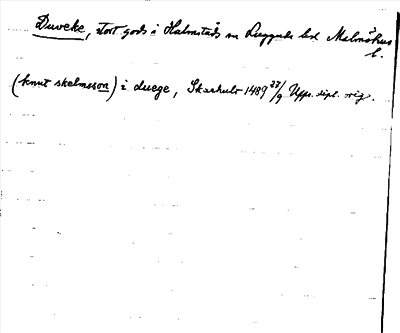 Duveke, stort gods i Halmstads sn Luggude hd Malmöhus
l.
(knut skelmsson) i duege, Skarhult 1489 23/9 Upps. dipl. reg.